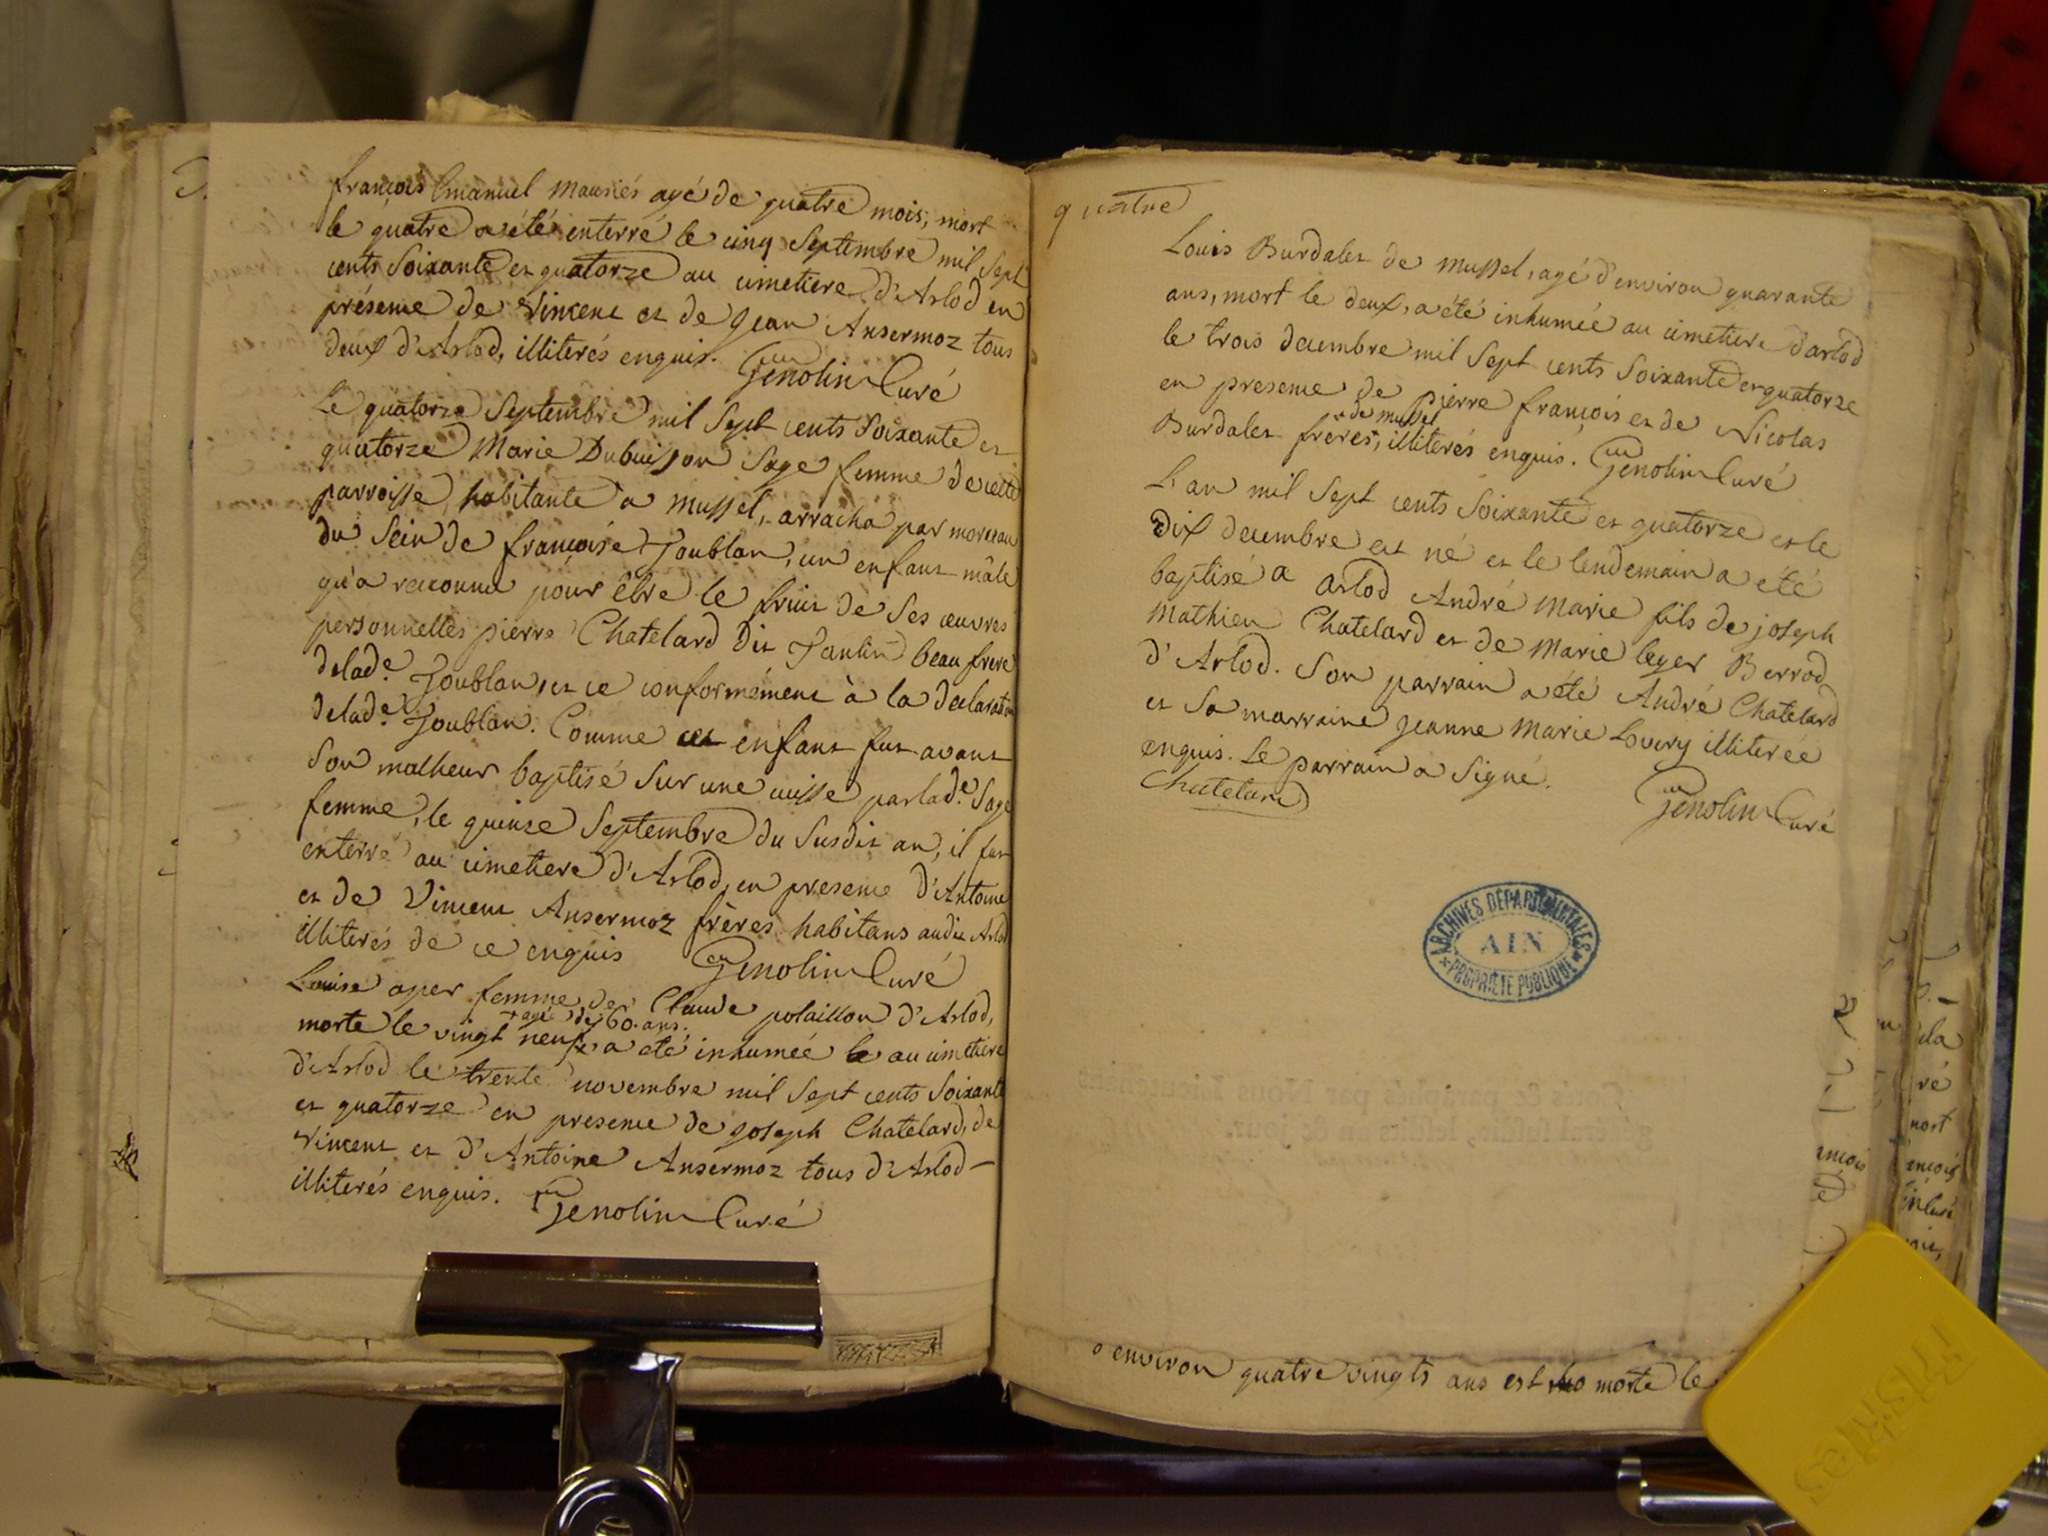 françois Emanuel Mauriés agé de quatre mois, mort
le quatre a été enterré le cinq Septembre mil Sept
cents Soixante et quatorze au cimetiere d'Arlod en
présence de Vincent et de Jean Ansermoz tous
deux d'Arlod, illiterés enquis. Genolin Curé
Le quatorze Septembre mil Sept cents Soixante et
quatorze Marie Dubuisson Sage femme de cette
parroisse, habitante a Mussel, arracha par morceau
du Sein de françoise Joublan, un enfant mâle
qu'a reconnu pour être le fruit de Ses œuvres
personnelles pierre Chatelard Dit Paulin beau frere
delade. Joublan, et ce conformément à la declaration
delade. Joublan. Comme cet enfant fut avant
Son malheur baptisé Sur une cuisse parlade. Sage
femme, le quinze Septembre du Susdit an, il fut
enterré au cimetiere d'Arlod, en presence d'Antoine
et de Vincent Ansermoz frères habitans audit Arlod
illiterés de ce enquis Genolin Curé
Louise aper femme de Claude polaillon d'Arlod,
+ agé de 60. ans.
morte le vingt neuf + a été inhumée le au cimetiere
d'Arlod le trente novembre mil Sept cents Soixante
et quatorze en presence de Joseph Chatelard, de
Vincent et d'Antoine Ansermoz tous d'Arlod
illiterés enquis. Genolin Curé
quatre
Louis Burdalet de Mussel, agé d'environ quarante
ans, mort le deux, a été inhumée au cimetiere d'arlod
le trois decembre mil Sept cents Soixante et quatorze
en presence de pierre françois et de Nicolas
+ de mussel
Burdalet frères, illiterés enquis. Genolin Curé
L'an mil Sept cents Soixante et quatorze et le
Dix decembre est né et le lendemain a été
baptisé a arlod André Marie fils de joseph
Mathieu Chatelard et de Marie leger Berrod
d'Arlod. Son parrain a été André Chatelard
et Sa marraine Jeanne Marie Lovery illiterée
enquis. Le parrain a Signé.
Chatelard Genolin Curé
ARCHIVES DÉPARTEMENTALES
AIN
PROPRIÉTÉ PUBLIQUE
environ quatre vingts ans est morte le